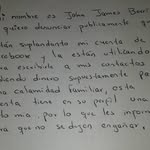 Mi nombre es John James Ber
quiero denunciar públicamente q
stán suplantando mi cuenta de
cebook y la están utilizando
a escribirle a mis contactos
diendo dinero supuestamente pa
na calamidad familiar, esta
enta tiene en su perfil una
to mia, por lo que les infor
ra que no se dejen engañar,